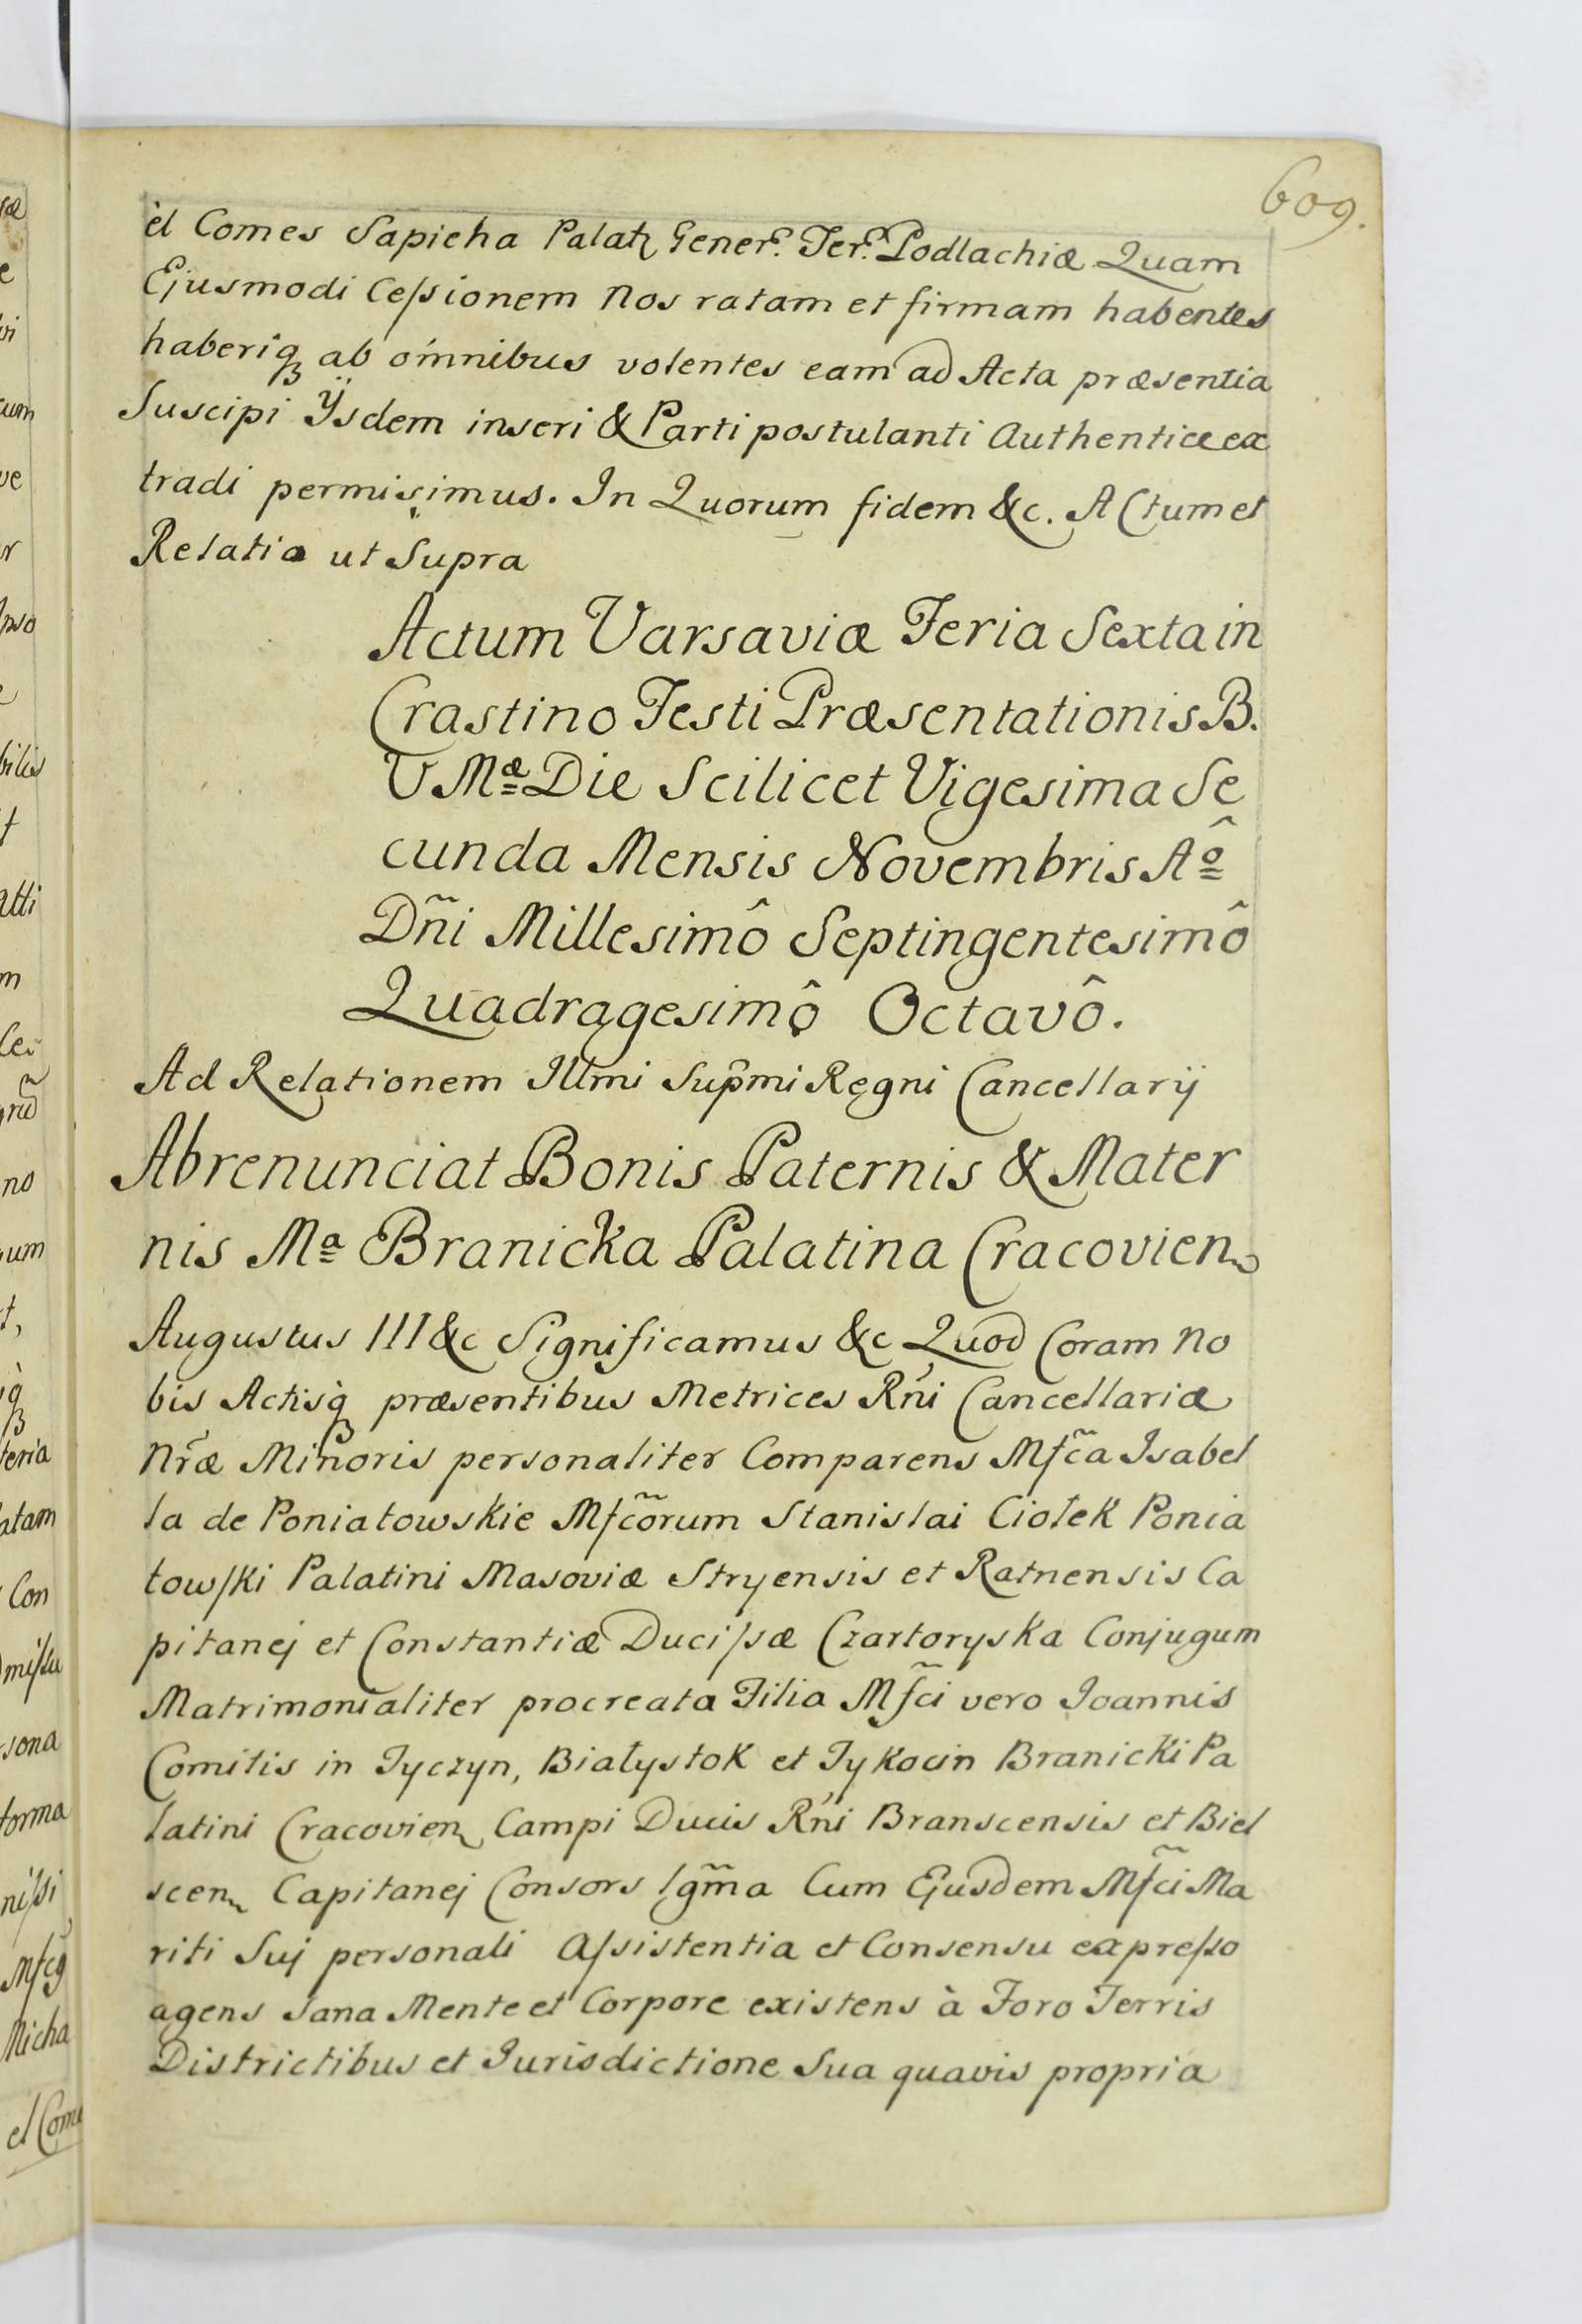 609.
el Comes Sapieha Palat Gener. Ter. Podlachiæ Quam
Ejusmodi Cessionem Nos ratam et firmam habentes
haberiq ab omnibus volentes eam ad Acta præsentia
Suscipi Ÿsdem inseri & Parti postulanti Authentice ex
tradi permisimus. In Quorum fidem &c. Actum et
Relatio ut Supra
Actum Varsaviæ Feria Sexta in
Crastino Festi Præsentationis B.
V Mæ Die Scilicet Vigesima Se
cunda Mensis Novembris Aô
Dñi Millesimô Septingentesimô
Quadragesimô Octavô.
Ad Relationem Illmi Supmi Regni Cancellarij
Abrenunciat Bonis Paternis & Mater
nis Ma Branicka Palatina Cracovien
Augustus III &c Significamus &c Quod Coram No
bis Actisq præsentibus Metrices Rñi Cancellariæ
Nræ Minoris personaliter Comparens Mfca Isabel
la de Poniatowskie Mfcorum Stanislai Ciołek Ponia
towski Palatini Masoviæ Stryensis et Ratnensis Ca
pitanej et Constantiæ Ducissæ Czartoryska Conjugum
Matrimonialiter procreata Filia Mfci vero Joannis
Comitis in Tyczyn, Białystok et Tykocin Branicki Pa
latini Cracovien Campi Ducis Rñi Branscensis et Biel
scen Capitanej Consors lgma Cum Ejusdem Mfci Ma
riti Suj personali Assistentia et Consensu expresso
agens sana Mente et Corpore existens à Foro Terris
Districtibus et Jurisdictione Sua quavis propria